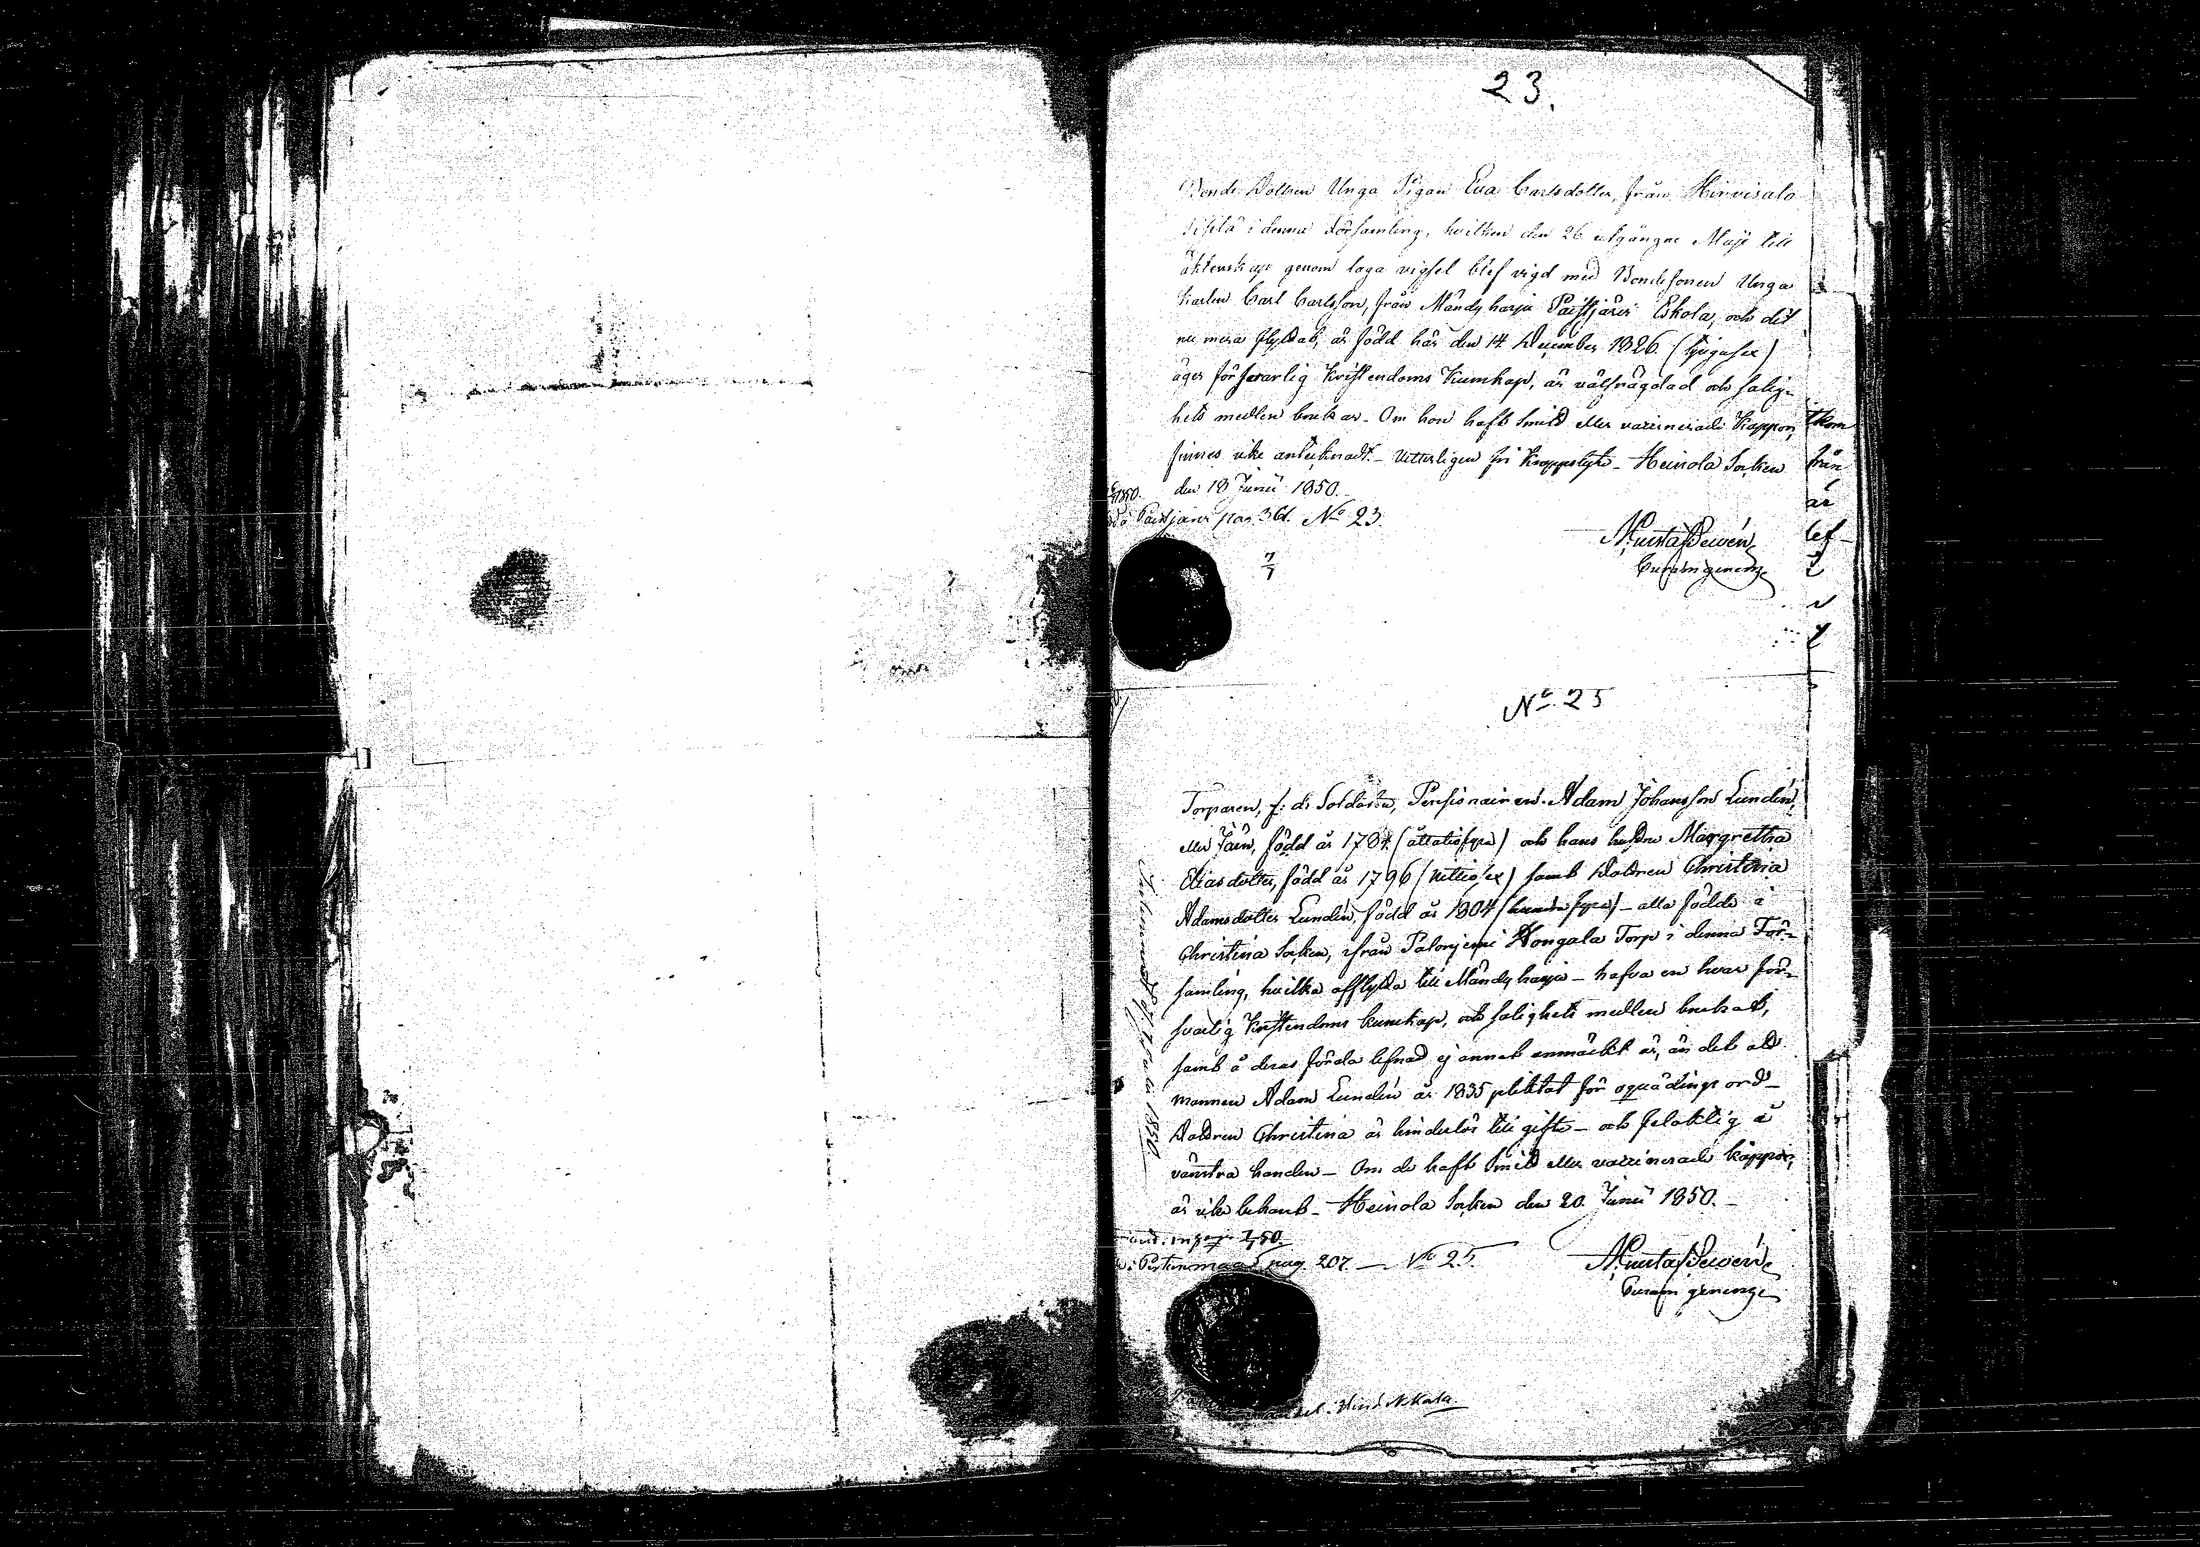 23.
Bonde Dottren Unga Pigan Eva Carlsdotter, från Hirvisalo
Sipilä i denna Församling, hvilken den 26 utgångne Maji till
äktenskap genom laga vigsel blef vigd med Bondesonen Unga
Karlen Carl Carlsson, från Mändyharju Paistjärvi Eskola, och dit
nu mera flyttat, är född här den 14 December 1826 (tjugusex)
äger försvarlig Kristendoms Kunskap, är välfrägdad och salig-
hets medlen brukar. Om hon haft Smitt eller vaccinerade Koppor,
finnes icke antecknadt. Vitterligen fri Kroppslyte. Heinola Socken
den 18 Junii 1850.
Paistjärvi pag. 361. No 23.
7/7
Gustaf
Curam gerens
tkom
från
är
lef
No 25
Torparen, f: d: Soldaten, Pensionairen Adam Johansson Lundén,
eller Jäin, född år 1784 (åttatiofyra) och hans hustru Margretha
Eliasdotter, född år 1796 (nittiosex) samt Dottren Christina
Adamsdotter Lundén, född år 1804 fyra) - alla födde i
Christina Socken, ifrån Palonjemi Hongala Torp i denna För-
samling, hvilka afflytta till Mändyharju - hafva en hvar för-
svarlig Kristendoms kunskap, och salighets medlen brukat,
samt å deras förda lefnad ej annat anmärkt är, än det att
mannen Adam Lundén år 1835 pliktat för oquädings ord -
Dottren Christina är hinderlös till gifte - och felaktig å
vänstra handen - Om de haft Smitt eller vaccinerade koppor,
är icke bekant - Heinola Socken den 20 Junii 1850. -
Pertunmaa pag. 207. - No 25.
Gustaf
Curam gerens
1850